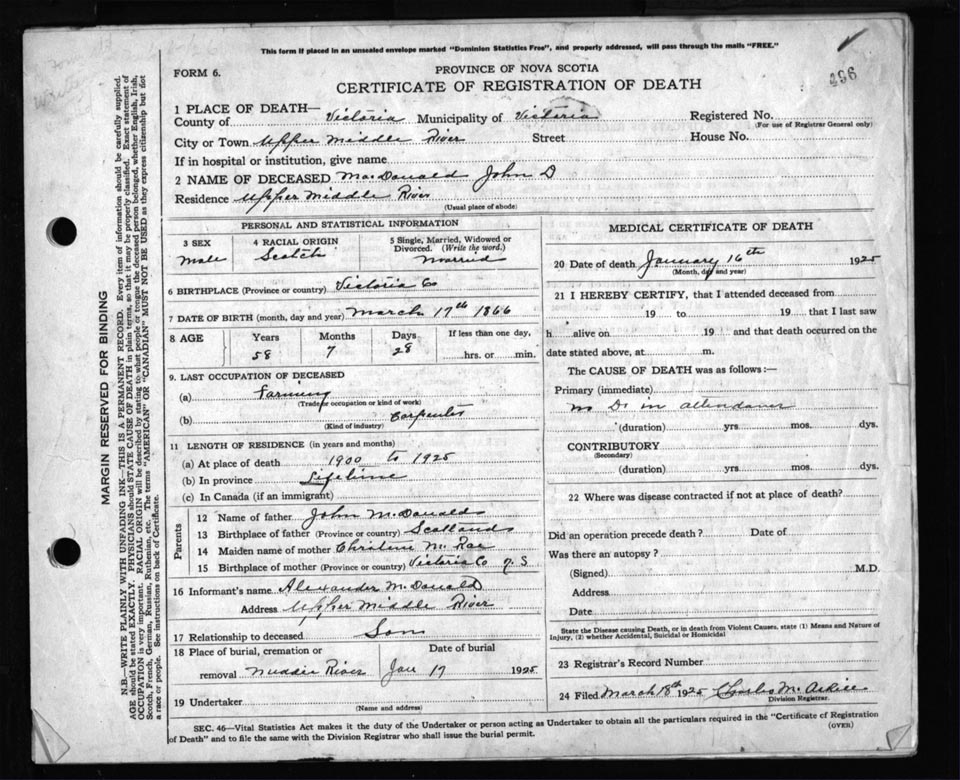 This form if placed in an unsealed envelope marked "Dominion Statistics Free", and properly addressed, will pass through the mails "FREE."
496
FORM 6.
PROVINCE OF NOVA SCOTIA
CERTIFICATE OF REGISTRATION OF DEATH
1 PLACE OF DEATH—
County of Victoria Municipality of Victoria Registered No.
(For use of Registrar General only)
City or Town Upper Middle River Street House No.
If in hospital or institution, give name
2 NAME OF DECEASED MacDonald John D
Residence Upper Middle River
(Usual place of abode)
PERSONAL AND STATISTICAL INFORMATION
3 SEX 4 RACIAL ORIGIN 5 Single, Married, Widowed or Divorced. (Write the word.)
Male Scotch Married
6 BIRTHPLACE (Province or country) Victoria Co
7 DATE OF BIRTH (month, day and year) March 17th 1866
8 AGE Years Months Days If less than one day,
58 7 28 hrs. or min.
9. LAST OCCUPATION OF DECEASED
(a) Farming
(Trade or occupation or kind of work)
(b) Carpenter
(Kind of industry)
11 LENGTH OF RESIDENCE (in years and months)
(a) At place of death 1900 to 1925
(b) In province Lifetime
(c) In Canada (if an immigrant)
Parents
12 Name of father John McDonald
13 Birthplace of father (Province or country) Scotland
14 Maiden name of mother Christene McRae
15 Birthplace of mother (Province or country) Victoria Co N. S
16 Informant's name Alexander McDonald
Address Upper Middle River
17 Relationship to deceased Son
18 Place of burial, cremation or Date of burial
removal Middle River Jan 17 1925
19 Undertaker
(Name and address)
MEDICAL CERTIFICATE OF DEATH
20 Date of death January 16th 1925
(Month, day and year)
21 I HEREBY CERTIFY, that I attended deceased from
19 to 19 that I last saw
h alive on 19 and that death occurred on the
date stated above, at m.
The CAUSE OF DEATH was as follows:—
Primary (immediate)
no Dr in attendance
(duration) yrs. mos. dys.
CONTRIBUTORY
(Secondary)
(duration) yrs. mos. dys.
22 Where was disease contracted if not at place of death?
Did an operation precede death? Date of
Was there an autopsy?
(Signed) M.D.
Address
Date
State the Disease causing Death, or in death from Violent Causes, state (1) Means and Nature of Injury, (2) whether Accidental, Suicidal or Homicidal
23 Registrar's Record Number
24 Filed March 18th 1925 Charles McAskill
Division Registrar.
SEC. 46—Vital Statistics Act makes it the duty of the Undertaker or person acting as Undertaker to obtain all the particulars required in the "Certificate of Registration
of Death" and to file the same with the Division Registrar who shall issue the burial permit.
(OVER)
MARGIN RESERVED FOR BINDING
N.B—WRITE PLAINLY WITH UNFADING INK—THIS IS A PERMANENT RECORD. Every item of information should be carefully supplied.
AGE should be stated EXACTLY. PHYSICIANS should STATE CAUSE OF DEATH in plain terms, so that it may be properly classified. Exact statement of
OCCUPATION is very important. RACIAL ORIGIN will be described by stating to what people or tongue the deceased person belonged, whether English, Irish,
Scotch, French, German, Russian, Ruthenian, etc. The terms "AMERICAN" or "CANADIAN" MUST NOT BE USED as they express citizenship but not
a race or people. See instructions on back of Certificate.